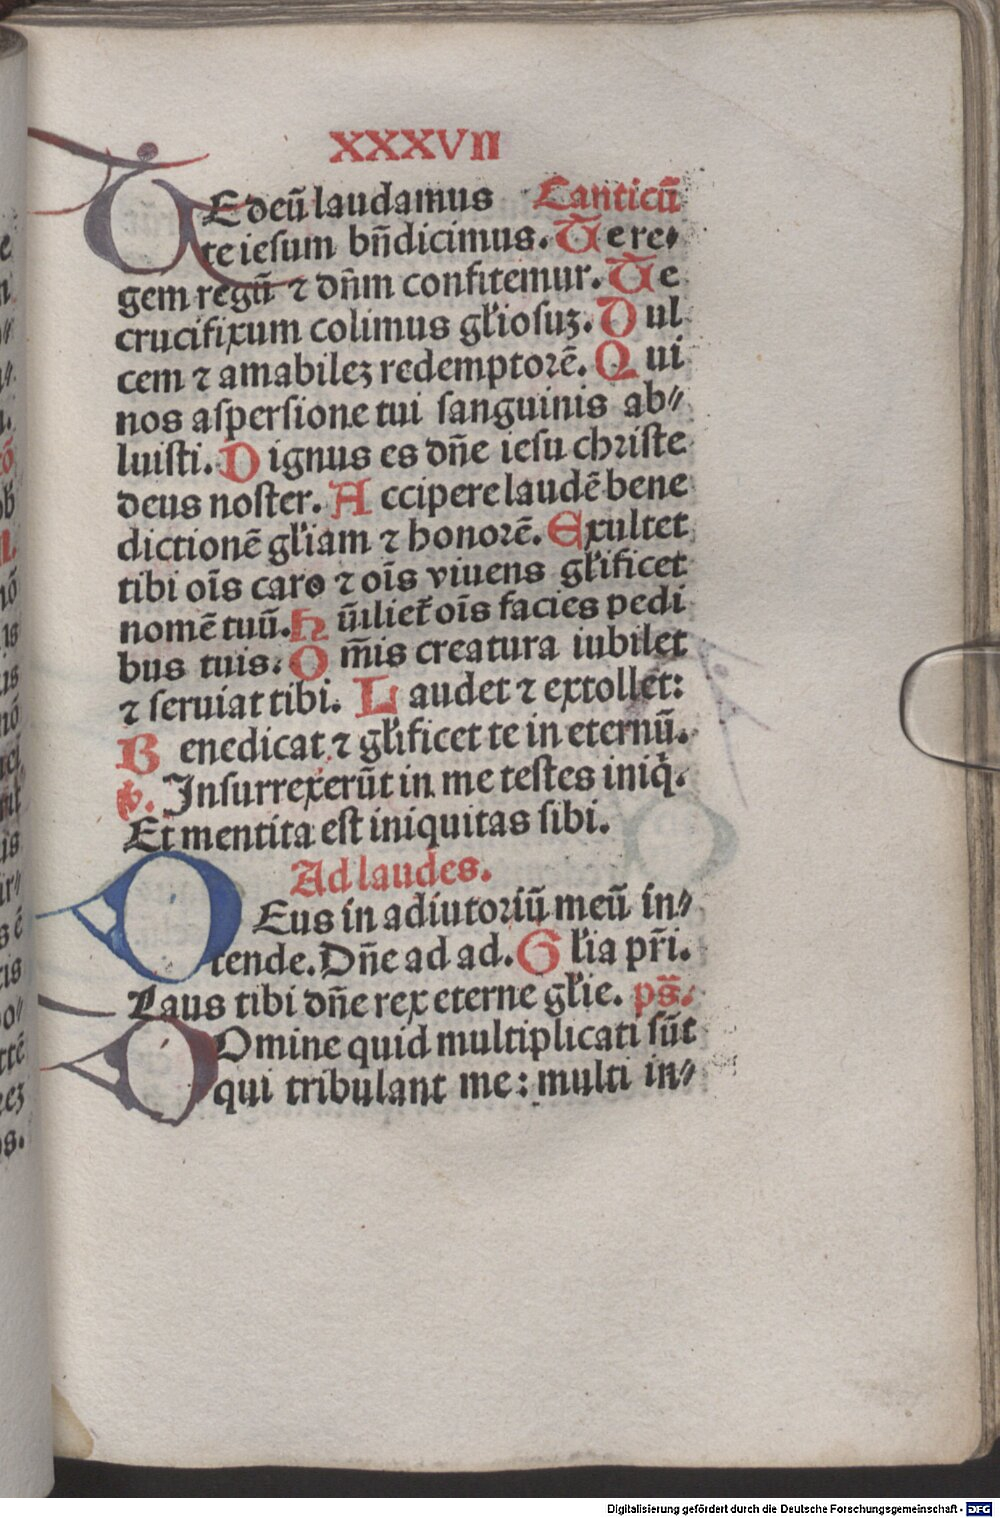 XXXVII
TE deū laudamus Canticū
te iesum bn̄dicimus. Te re⸗
gem regū ⁊ dn̄m confitemur. Te
crucifixum colimus gl̄iosuꝫ. Dul
cem ⁊ amabileꝫ redemptorē. Qui
nos aspersione tui sanguinis ab⸗
luisti. Dignus es dn̄e iesu christe
deus noster. Accipere laudē bene
dictionē gl̄iam ⁊ honorē. Exultet
tibi oīs caro ⁊ oīs viuens gl̄ificet
nomē tuū. Hūiliet̄ oīs facies pedi
bus tuis. Om̄is creatura iubilet
⁊ seruiat tibi. Laudet ⁊ extollet:
Benedicat ⁊ gl̄ificet te in eternū.
℣. Insurrexerūt in me testes iniq̇.
Et mentita est iniquitas sibi.
Ad laudes.
DEus in adiutoriū meū in⸗
tende. Dn̄e ad ad. Gl̄ia pr̄i.
Laus tibi dn̄e rex eterne gl̄ie. ps̄.
DOmine quid multiplicati sūt
qui tribulant me: multi in⸗
Digitalisierung gefördert durch die Deutsche Forschungsgemeinschaft - DFG